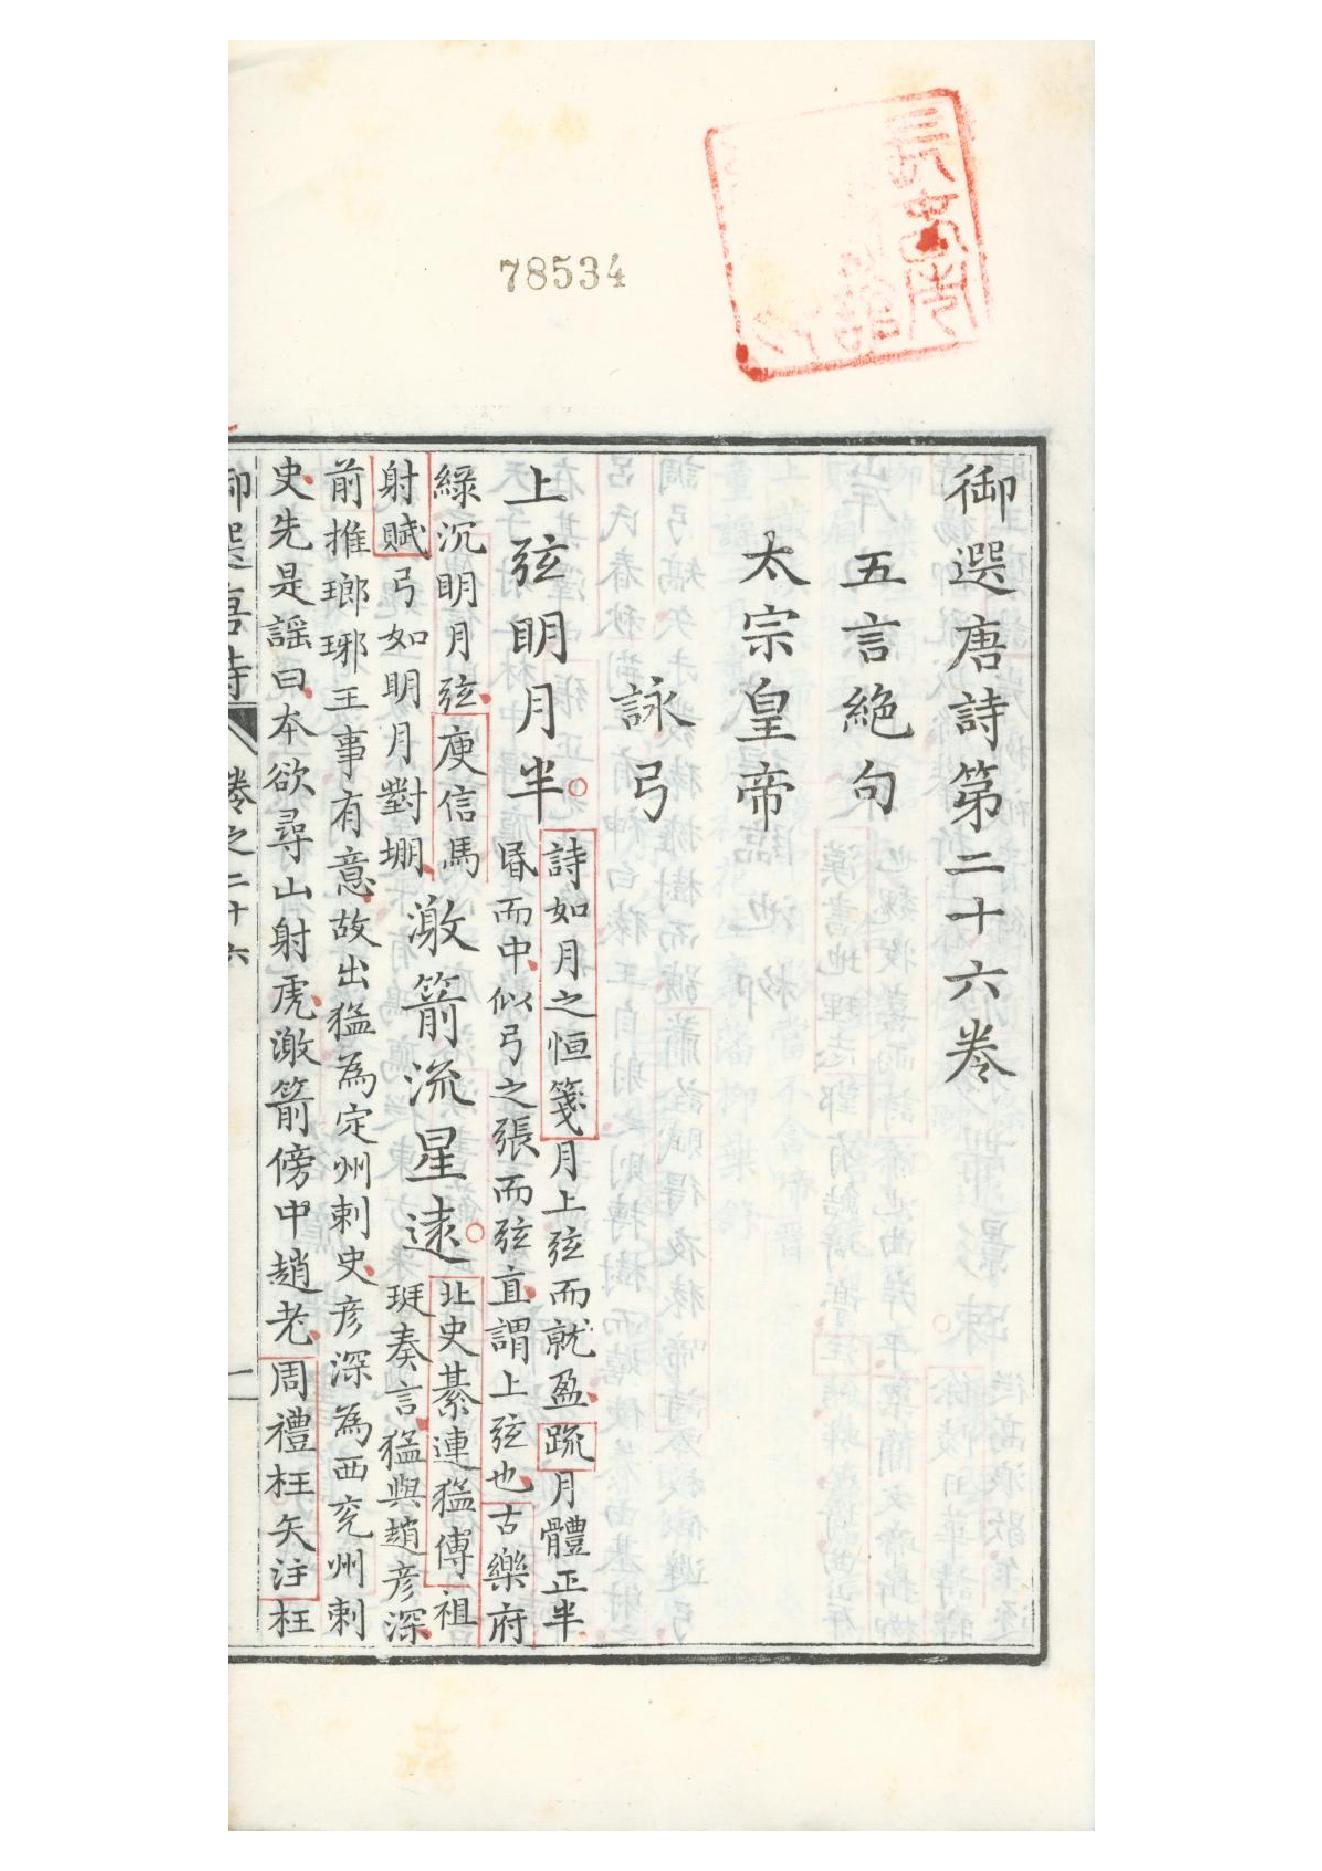 78534
御選唐詩第二十六卷
五言絶句
太宗皇帝
詠弓
上弦明月半
詩如月之恒箋月上弦而就盈疏月體正半
昏而中似弓之張而弦直謂上弦也古樂府
綠沉明月弦庾信馬
射賦弓如明月對堋
激箭流星遠
北史綦連猛傳祖
珽奏言猛與趙彥深
前推瑯琊王事有意故出猛為定州刺史彥深為西兖州刺
史先是謠曰本欲尋山射虎激箭傍中趙老周禮枉矢注枉
御選唐詩 卷之二十六 一